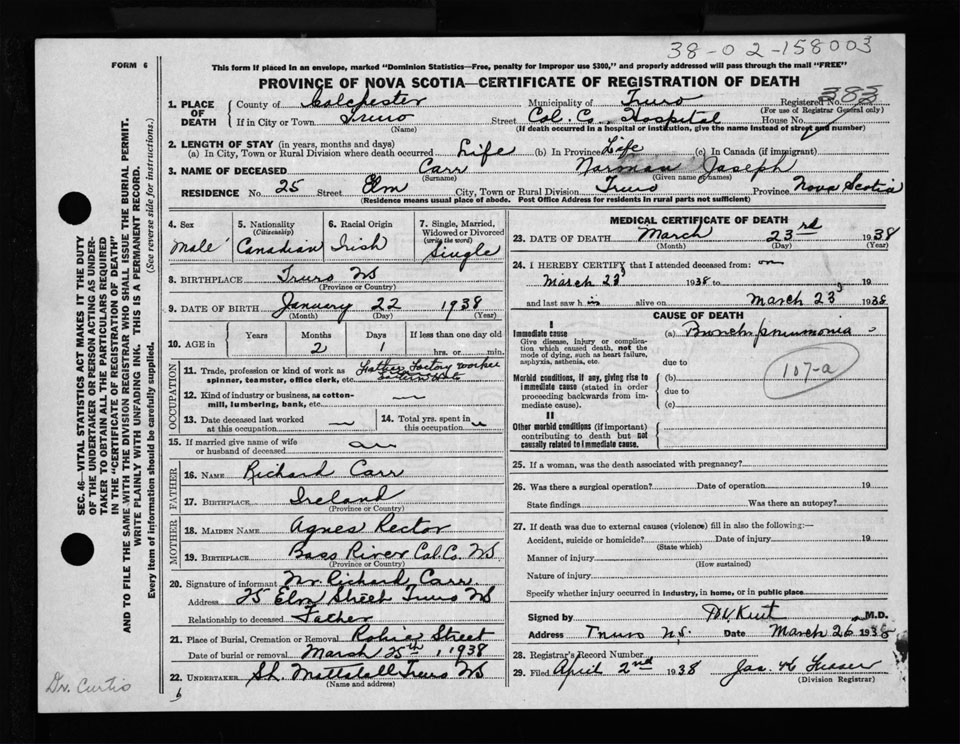 38-02-158003
FORM 6
This form if placed in an envelope, marked "Dominion Statistics—Free, penalty for improper use $300," and properly addressed will pass through the mail "FREE"
PROVINCE OF NOVA SCOTIA—CERTIFICATE OF REGISTRATION OF DEATH
1. PLACE OF DEATH County of Colchester Municipality of Truro Registered No. 383
(For use of Registrar General only)
If in City or Town Truro Street Col. Co. Hospital House No.
(Name) (If death occurred in a hospital or institution, give the name instead of street and number)
2. LENGTH OF STAY (in years, months and days)
(a) In City, Town or Rural Division where death occurred Life (b) In Province Life (c) In Canada (if immigrant)
3. NAME OF DECEASED Carr Norman Joseph
(Surname) (Given name or names)
RESIDENCE No. 25 Street Elm City, Town or Rural Division Truro Province Nova Scotia
(Residence means usual place of abode. Post Office Address for residents in rural parts not sufficient)
SEC. 46—VITAL STATISTICS ACT MAKES IT THE DUTY
OF THE UNDERTAKER OR PERSON ACTING AS UNDER-
TAKER TO OBTAIN ALL THE PARTICULARS REQUIRED
IN THE "CERTIFICATE OF REGISTRATION OF DEATH"
AND TO FILE THE SAME WITH THE DIVISION REGISTRAR WHO SHALL ISSUE THE BURIAL PERMIT.
WRITE PLAINLY WITH UNFADING INK. THIS IS A PERMANENT RECORD.
Every item of information should be carefully supplied. (See reverse side for instructions.)
4. Sex 5. Nationality (Citizenship) 6. Racial Origin 7. Single, Married, Widowed or Divorced (write the word)
Male Canadian Irish Single
8. BIRTHPLACE Truro NS
(Province or Country)
9. DATE OF BIRTH January 22 1938
(Month) (Day) (Year)
10. AGE in Years Months Days If less than one day old
2 1 hrs. or min.
OCCUPATION
11. Trade, profession or kind of work as spinner, teamster, office clerk, etc. Father Factory worker
12. Kind of industry or business, as cotton-mill, lumbering, bank, etc. —
13. Date deceased last worked at this occupation — 14. Total yrs. spent in this occupation
15. If married give name of wife or husband of deceased
FATHER
16. NAME Richard Carr
17. BIRTHPLACE Ireland
(Province or Country)
MOTHER
18. MAIDEN NAME Agnes Rector
19. BIRTHPLACE Bass River Col. Co. NS
(Province or Country)
20. Signature of informant Mr. Richard Carr.
Address 25 Elm Street Truro NS
Relationship to deceased Father
21. Place of Burial, Cremation or Removal Robie Street
Date of burial or removal March 25th, 1938
22. UNDERTAKER Mattatall Truro NS
(Name and address)
Dr. Curtis
6
MEDICAL CERTIFICATE OF DEATH
23. DATE OF DEATH March 23rd 1938
(Month) (Day) (Year)
24. I HEREBY CERTIFY that I attended deceased from: on
March 23 1938 to 19
and last saw him alive on March 23 1938
CAUSE OF DEATH
I
Immediate cause (a) Bronchopneumonia
Give disease, injury or complica-
tion which caused death, not the
mode of dying, such as heart failure,
asphyxia, asthenia, etc. due to
107-a
Morbid conditions, if any, giving rise to (b)
immediate cause (stated in order due to
proceeding backwards from im-
mediate cause). (c)
II
Other morbid conditions (if important)
contributing to death but not
causally related to immediate cause.
25. If a woman, was the death associated with pregnancy?
26. Was there a surgical operation? Date of operation 19
State findings Was there an autopsy?
27. If death was due to external causes (violence) fill in also the following:—
Accident, suicide or homicide? Date of injury 19
(State which)
Manner of injury
(How sustained)
Nature of injury
Specify whether injury occurred in industry, in home, or in public place
Signed by M.D.
Address Truro N.S. Date March 26 1938
28. Registrar's Record Number
29. Filed April 2nd 1938 Jas. Fraser
(Division Registrar)